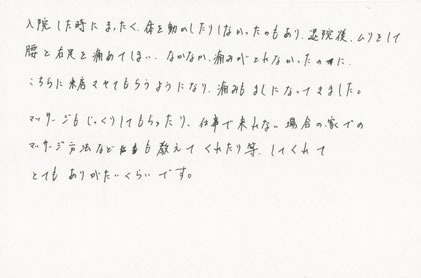 入院した時にまったく、体を動かしたりしなかったのもあり、退院後、ムリをして
腰と右足を痛めてしまい、なかなか、痛みがとれなかったのに、
こちらに来店させてもらうようになり、痛みもましになってきました。
マッサージもじっくりしてもらったり、仕事で来れない場合の、家での
マッサージ方法なども教えてくれたり等、してくれて
とてもありがたいくらいです。